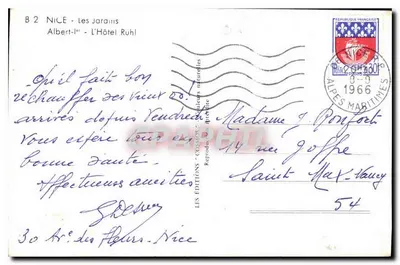 B 2 NICE - Les Jardins
Albert-Ier - L'Hôtel Ruhl
Qu'il fait bon
réchauffer ses vieux os!
arrivés depuis Vendredi
Vous espère tous en
bonne santé.
affectueuses amitiés
30 Av. des fleurs - Nice
LES EDITIONS
REPUBLIQUE FRANÇAISE
0,30
NICE
1966
ALPES MARITIMES
Madame J Bonfort
14 rue Joffre
Saint Max - Nancy
54